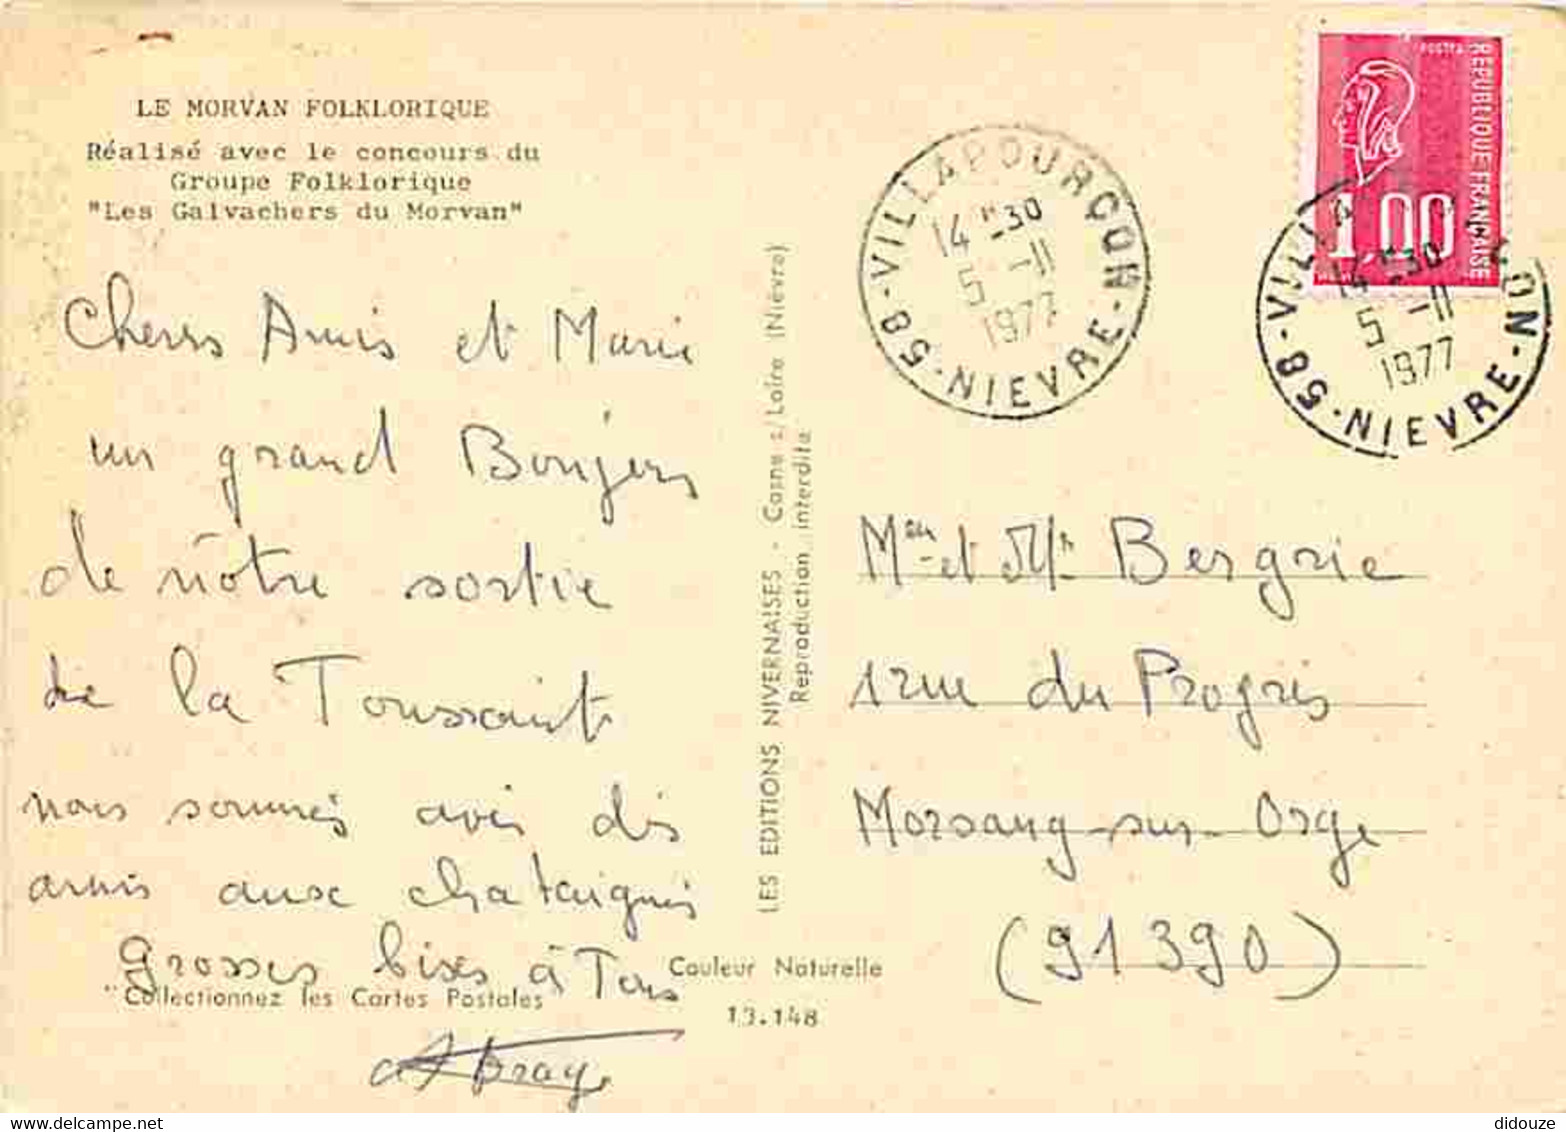 LE MORVAN FOLKLORIQUE
Réalisé avec le concours du
Groupe Folklorique
"Les Galvachers du Morvan"
Chers Amis et Marie
un grand Bonjour
de nôtre sortie
de la Toussaint
nous sommes avec des
amis aux chataignes
Grosses bises à Tous
"Collectionnez les Cartes Postales
Couleur Naturelle
13.148
LES EDITIONS NIVERNAISES - Cosne s/Loire (Nièvre)
Reproduction interdite
58 - VILLAPOURÇON - NIEVRE
14 H 30
5 -11
1977
POSTES
REPUBLIQUE FRANÇAISE
1,00
58 - VILLAPOURÇON - NIEVRE
14 H 30
5 -11
1977
Mme et Mr Bergrie
1 rue du Progrès
Morsang-sur-Orge
(91390)
delcampe.net
didouze